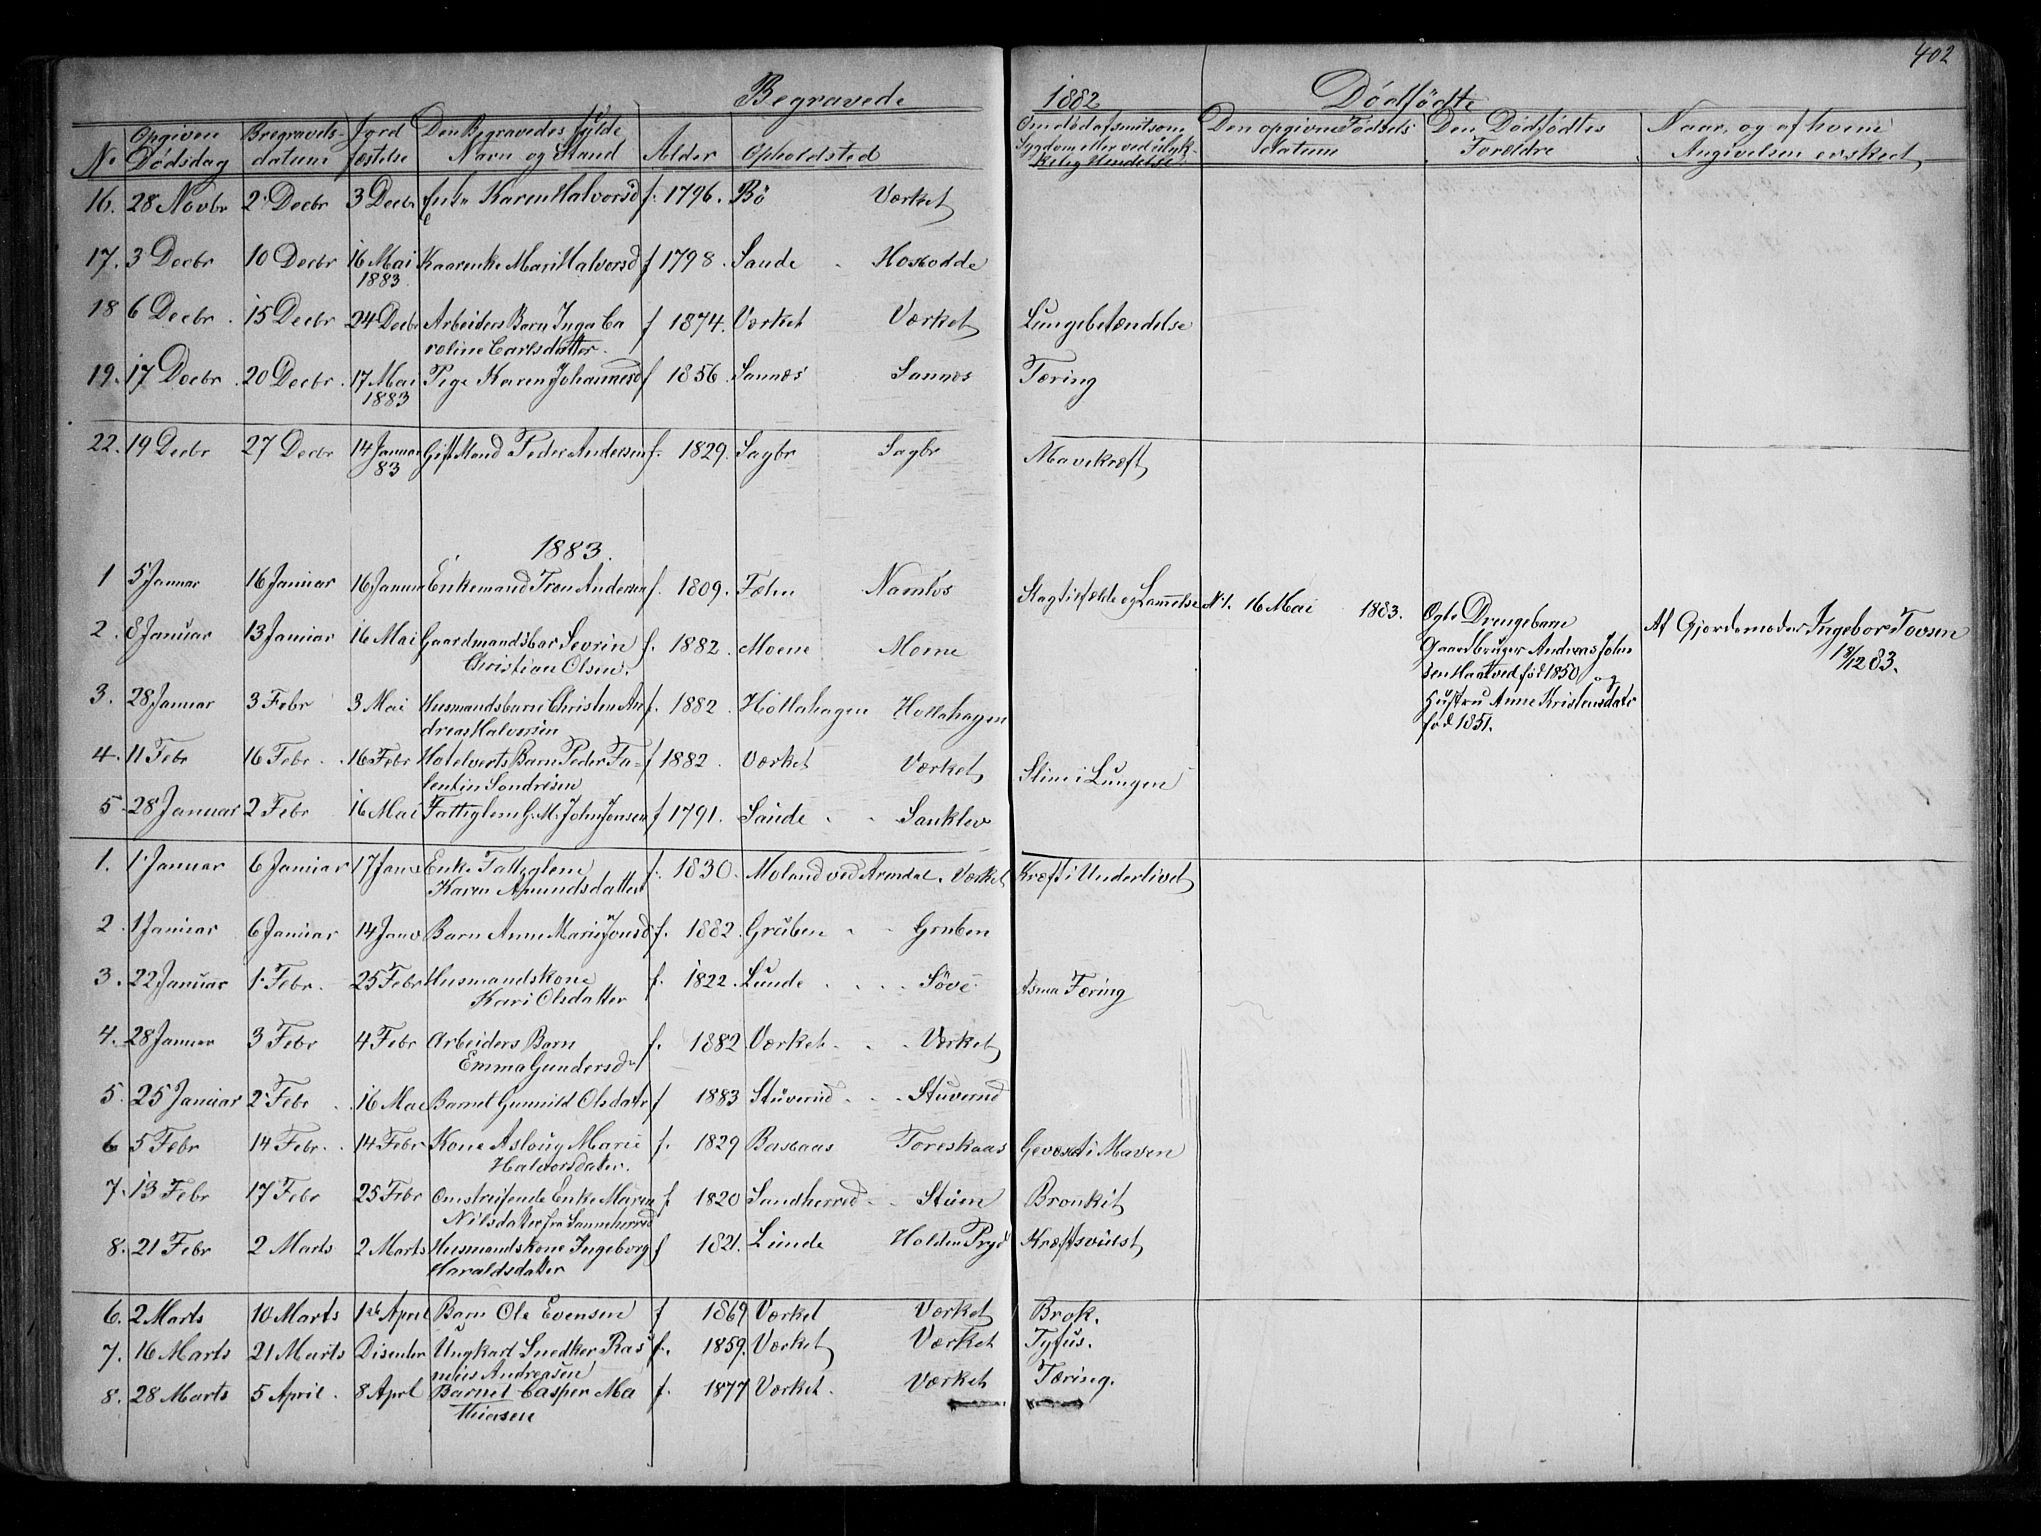 402
Begravede 1882 Dødfødte
No Opgiven Dødsdag Begravelsdatum Jordfæstelse Den Begravedes fulde Navn og Stand Alder Opholdsted Om død af smitsom Sygdom eller ved ulykkelig Hendelse Den opgivne Fødsels datum Den Dødfødtes Forældre Naar og af hvem Angivelsen er skeet
16. 28 Novbr 2 Decbr 3 Decbr Enke Karen Halvorsd f. 1796. Bø Værket
17. 3 Decbr 10 Decbr 16 Mai Kaarenke Mari Halvorsd f 1798. Saude
1883.
18 6 Decbr. 15 Decbr 24 Decbr Arbeiders Barn Inga Ca f 1874. Værket Værket Lungebetændelse
roline Carlsdatter.
19. 17 Decbr. 20 Decbr. 17 Mai Pige Karen Johannesd f 1856. Sannæs Sannæs Tæring
1883
22. 19 Decbr 27 Decbr 14 Januar Gift Mand Peder Andersen f. 1829. Sagbr Sagbr Mavekræft
83
1883.
1 5 Januar 16 Januar 16 Januar Enkemand Tron Andersen f. 1809. Fæhn Namløs No 1. 16 Mai 1883. Ægte Drengebarn
2. 8 Januar 13 Januar 16 Mai Gaardmandsbar Sevrin f. 1882. Moene Moene Gaardbruger Andreas John Af Gjordemoder Ingebor Tovsen
Christian Olsen. sen Haatved fød 1850 og 18/12 83.
3. 28 Januar 3 Febr 3 Mai Husmandsbarn Christen An f. 1882. Hollahagen Hollahagen Hustru Anne Kristensdatr
dreas Halvorsen fød 1851.
4. 11 Febr 16 Febr. 16 Febr Hotelverts Barn Peder Fa- f 1882. Værket Værket Slim i Lungen
lentin Sondresen
5. 28 Januar 2 Febr 16 Mai Fattiglem G.M. John Jonsen f 1791. Saude Sanklev
1. 1 Januar 6 Januar 17 Janv Enke Fattiglem f. 1830. Moland ved Arendal. Værket Kræft i Underlivet
Karen Amundsdatter
2. 1 Januar 6 Januar 14 Janv Barn Anne Marie Jonsd f. 1882. Gruben Gruben
3. 22 Januar 1. Febr. 25 Febr Husmandskone f. 1822. Lunde Søve Asma Tæring
Kari Olsdatter
4. 28 Januar 3 Febr 4 Febr Arbeiders Barn f. 1882 Værket Værket
Emma Gundersd
5. 25 Januar 2 Febr. 16 Mai Barnet Gunnild Olsdatr f 1883 Stuverud Stuverud
6 5 Febr 14 Febr. 14 Febr Kone Aslaug Marie f. 1829 Basbaas Toreskaas Gevæxt i Maven
Halvorsdater.
7. 13 Febr 17 Febr 25 Febr Omstreifende Enke Maren f 1820 Sandherred Stuen Bronkit
Nilsdater fra Sanneherred
8. 21 Febr 2 Marts 2 Marts Husmandskone Ingeborg f 1821. Lunde Holden Prgd Kræftsvulst
Haraldsdatter
6. 2 Marts 10 Marts 1ste April Barn Ole Evensen f 1869 Værket Værket Brok.
7. 16 Marts 21 Marts Disenter Ungkarl Snedker Ras f. 1859. Værket Værket Tyfus.
mus Andreasen
8. 28 Marts 5 April. 8 Aprl Barnet Casper Ma f. 1877 Værket. Værket Tæring.
thiasen